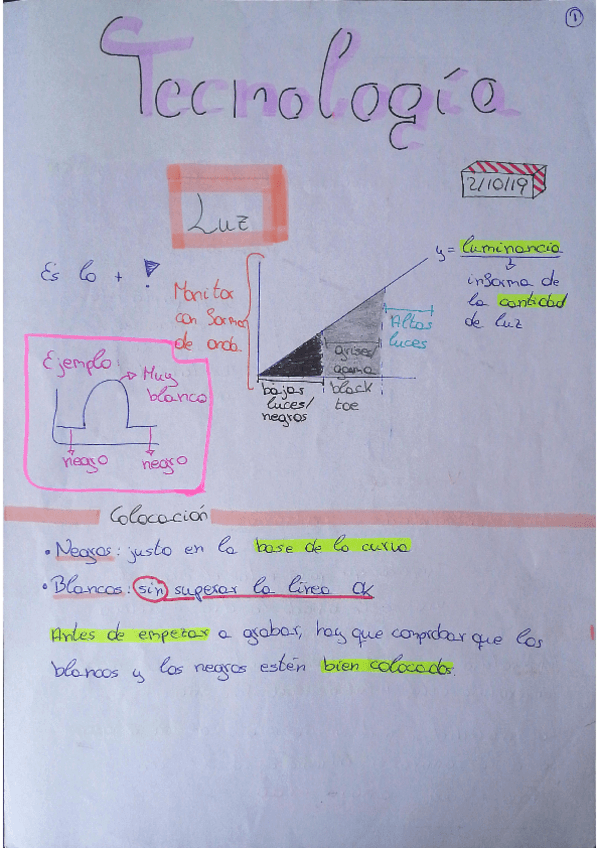 1
Tecnología
2/10/19
Luz
Es lo + !
Monitor
con forma
de onda
y = luminancia
informa de
la cantidad
de luz
Altas
luces
grises
gama
black
toe
bajas
luces/
negros
Ejemplo
Muy
blanco
negro
negro
Colocación
• Negros: justo en la base de la curva
• Blancos: sin superar la línea
Antes de empezar a grabar, hay que comprobar que los
blancos y los negros estén bien colocados.